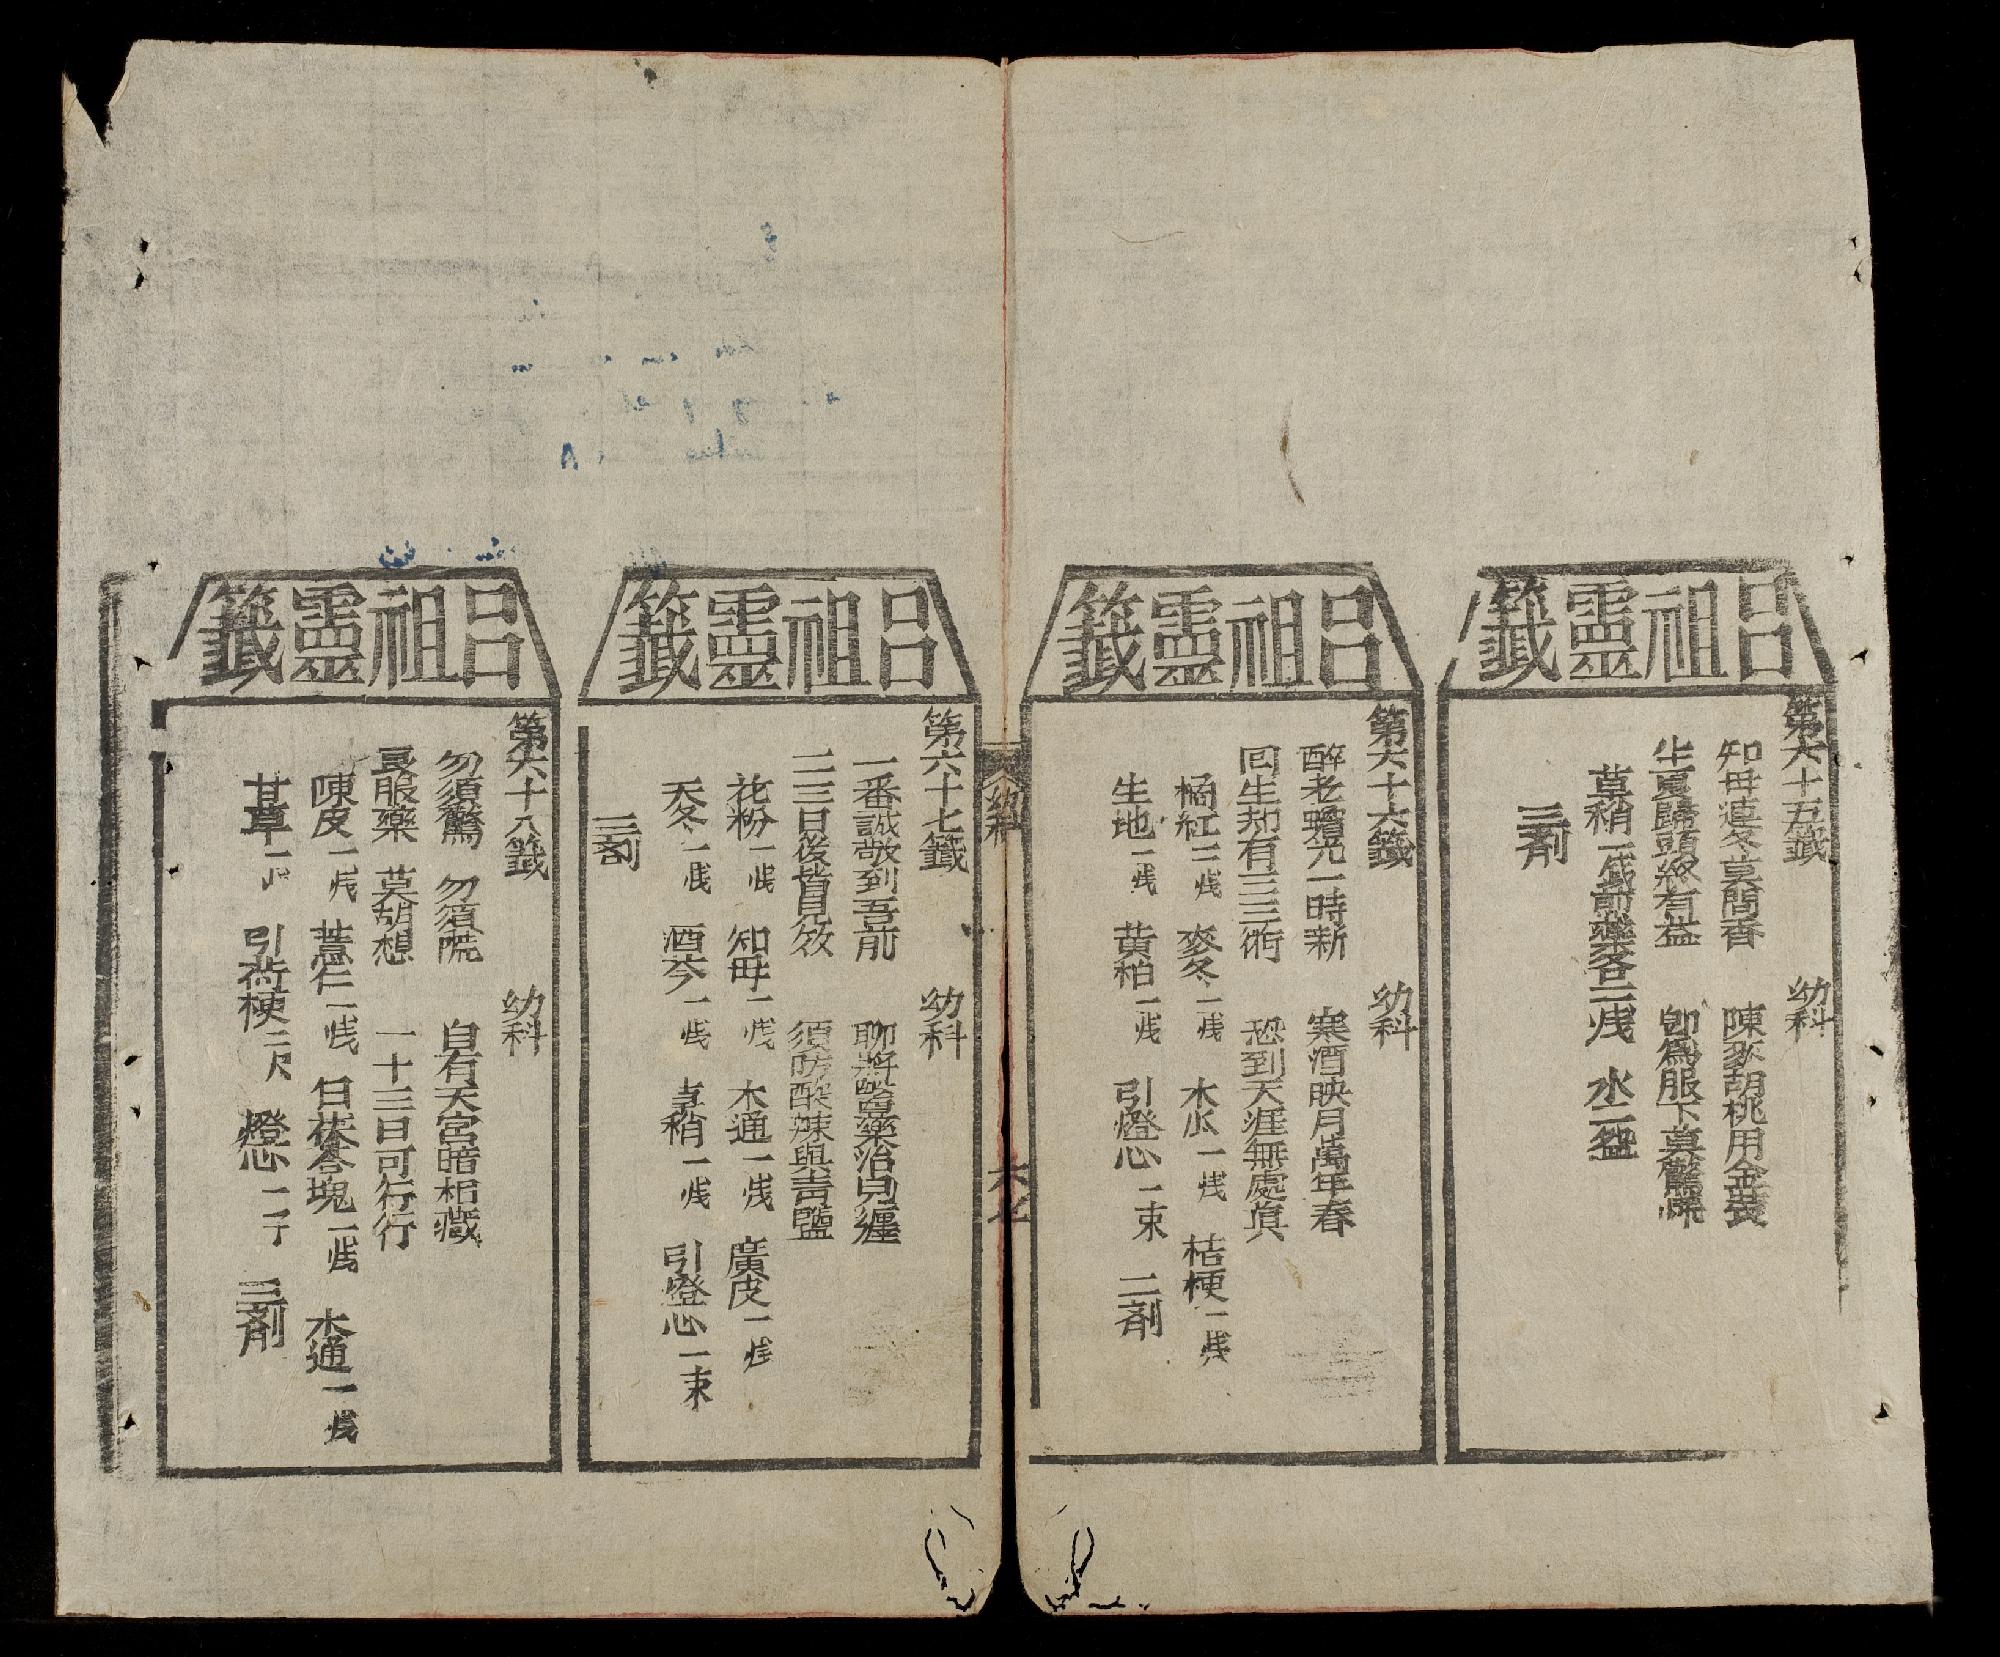 呂祖靈籤
第六十五籤 幼科
知母連冬莫問香 陳麥胡桃用金裝
生夏歸頭終有益 即為服下莫驚慌
草稍一戔前藥各二戔 水二盌
三劑
呂祖靈籤
第六十六籤 幼科
醉老蟾光一時新 寒酒映月萬年春
回生却有三三術 恐到天涯無處真
橘紅三戔 麥冬一戔 木瓜一戔 桔梗一戔
生地一戔 黃柏一戔 引燈心一束 二劑
幼科
呂祖靈籤
第六十七籤 幼科
一番誠敬到吾前 聊將醫藥治兒纏
二三日後皆見效 須防酸辣與青鹽
花粉一戔 知母一戔 木通一戔 廣皮一戔
天冬一戔 酒芩一戔 草稍一戔 引燈心一束
三劑
呂祖靈籤
第六十八籤 幼科
勿須驚 勿須慌 自有天宮暗相藏
良服藥 莫胡想 一十三日可行行
陳皮一戔 薏仁一戔 白茯苓塊一戔 木通一戔
甘草一 引荷梗二次 燈心一子 三劑